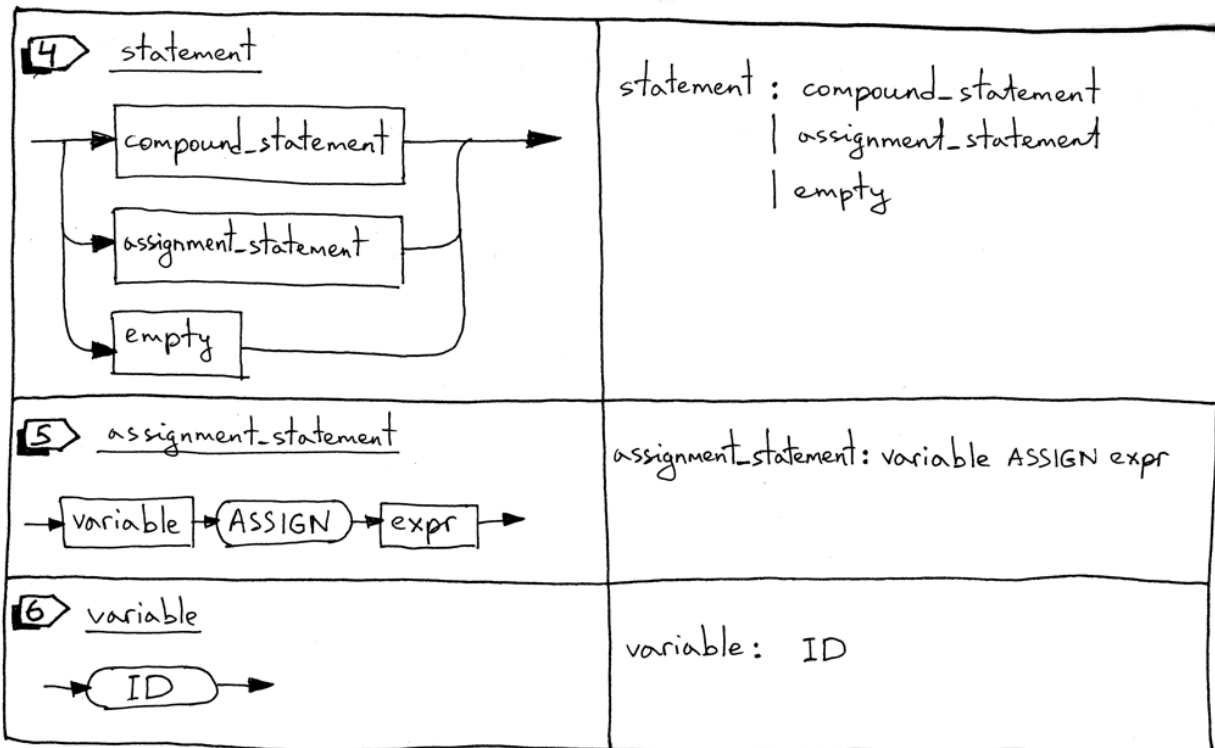 4 statement
compound_statement
assignment_statement
empty
statement : compound_statement
| assignment_statement
| empty
5 assignment_statement
variable ASSIGN expr
assignment_statement: variable ASSIGN expr
6 variable
ID
variable: ID